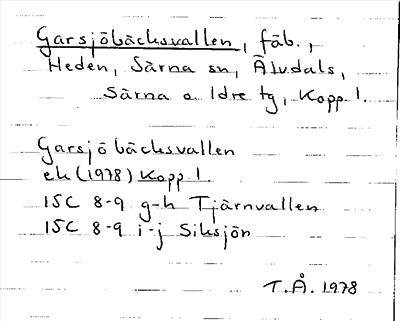 Garsjöbäcksvallen, fäb.,
Heden, Särna sn, Älvdals,
Särna o. Idre tg, Kopp l.
Garsjöbäcksvallen
ek (1978) Kopp l.
15C 8-9 g-h Tjärnvallen
15C 8-9 i-j Siksjön
T.Å. 1978